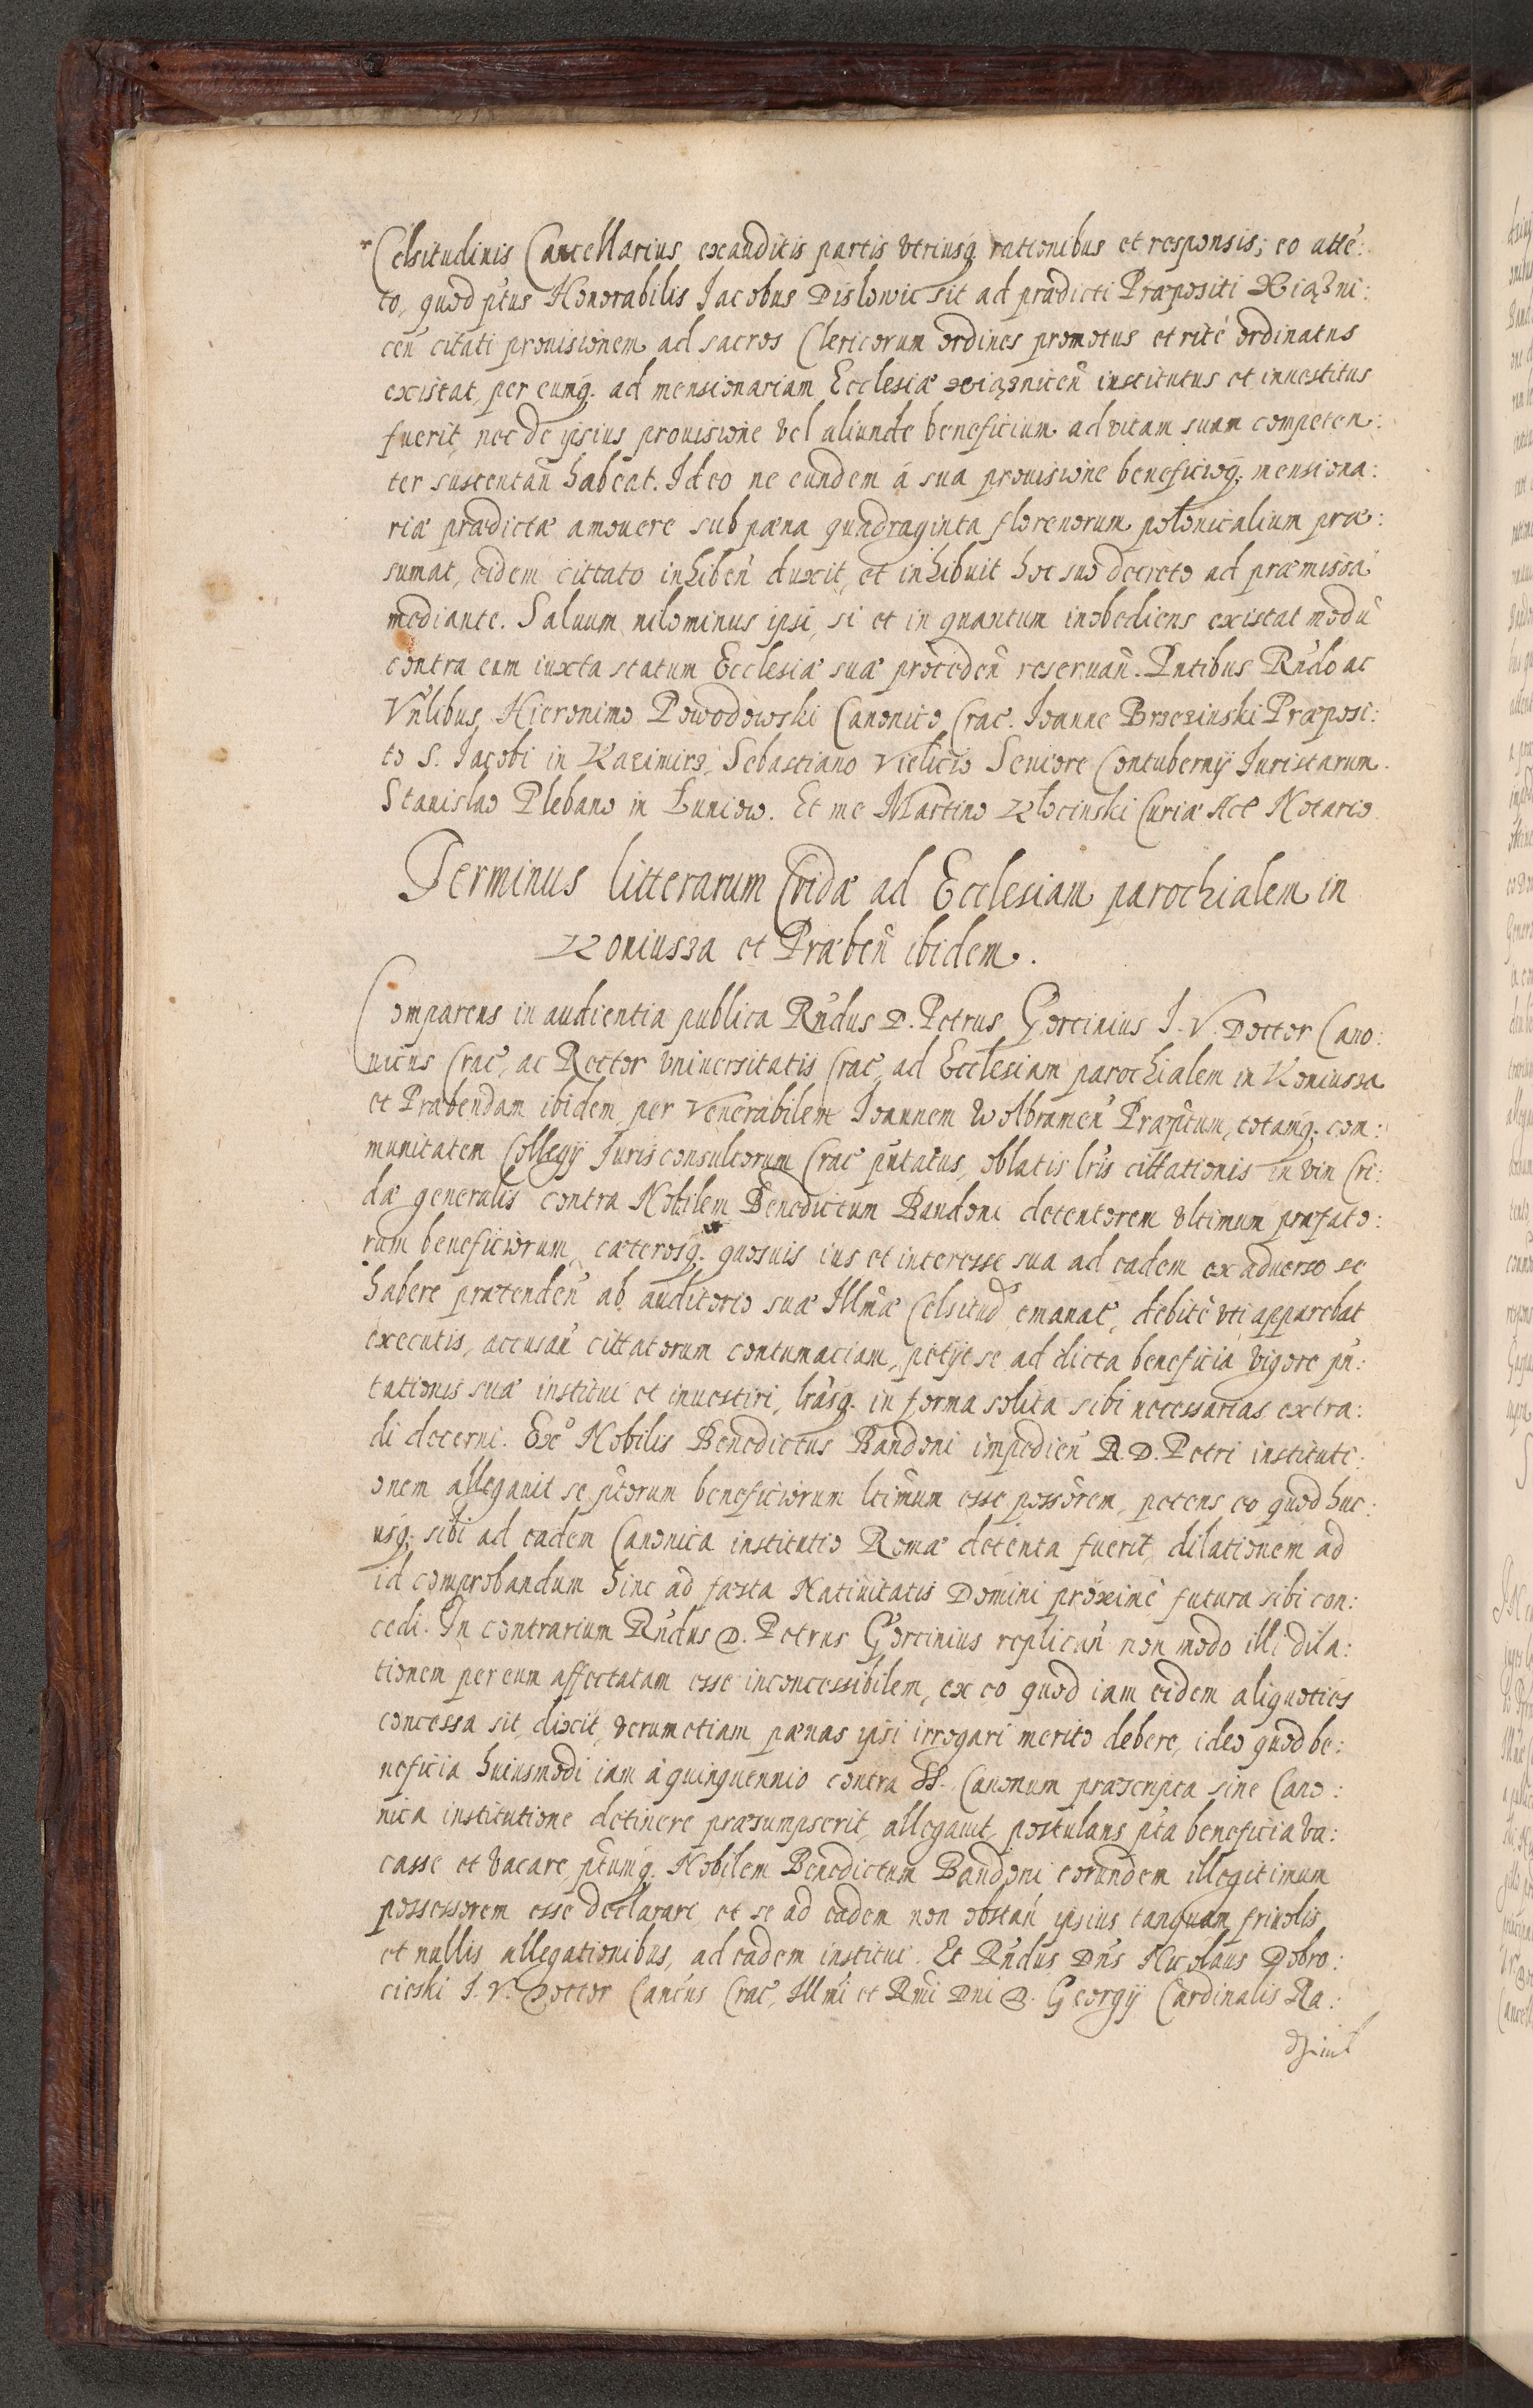 Celsitudinis Cancellarius exauditis partis vtriusq. rationibus et responsis; eo atté:
to, quod p̃tus Honorabilis Jacobus Dislowic sit ad prædicti Præpositi Xiążni:
ceñ citati prouisionem ad sacros Clericorum ordines promotus et ritè ordinatus
existat, per eumq. ad mensionariam Ecclesiæ Xiążniceñ institutus et inuestitus
fuerit, nec de ipsius prouisione vel aliunde beneficium ad vitam suam competen:
ter sustentañ habeat. Ideo ne eundem á sua prouisione beneficioq. mensiona:
riæ prædictæ amouere sub pæna quadraginta florenorum polonicalium præ:
sumat, eidem cittato inhibeñ duxit, et inhibuit hoc suo decreto ad præmissa
mediante. Saluum nilominus ipsi, si et in quantum inobediens existat modũ
contra eum iuxta statum Ecclesiæ suæ procedeñ reseruañ. Pñtibus Rñdo ac
Vñlibus Hieronimo Powodowski Canonico Crac. Joanne Brzezinski Præposi:
to S. Jacobi in Kazimirz, Sebastiano Vielicio Seniore Contubernij Juristarum.
Stanislao Plebano in Łuniow. Et me Martino Kłocinski Curiæ Actẽ Notario
Terminus litterarum Cridæ ad Ecclesiam parochialem in
Koniussa et Præbeñ ibidem.
Comparens in audientia publica Rñdus D. Petrus Gorcinius J. V. Doctor Cano:
nicus Crac̃, ac Rector vniuersitatis Crac̃, ad Ecclesiam parochialem in Koniussa
et Præbendam ibidem per Venerabilem Joannem Wolbrameñ Præp̃itum, totamq. com:
munitatem Collegij Jurisconsultorum Crac̃ pñtatus, oblatis lr̃is cittationis in vim Cri:
dæ generalis contra Nobilem Benedictum Bandoni detentorem vltimum præfato:
rum beneficiorum, cæterosq. quosuis ius et interesse sua ad eadem ex aduerso se
habere prætendeñ ab auditorio suæ Illmæ Celsitud̃ emanat̃, debitè vti apparebat
executis, accusañ cittatorum contumaciam, petijt se ad dicta beneficia vigore pñ:
tationis suæ institui et inuestiri, lr̃asq. in forma solita sibi necessarias extra:
di decerni. Exº Nobilis Benedictus Bandoni impedieñ R. D. Petri instituti:
onem allegauit se p̃torum beneficiorum ltĩmum esse possõrem, petens eo quod huc:
usq. sibi ad eadem Canonica institutio Romæ detenta fuerit, dilationem ad
id comprobandum hinc ad fæsta Natiuitatis Domini proximè futura sibi con:
cedi. In contrarium Rñdus D. Petrus Gorcinius replicañ non modo illi dila:
tionem per eum affectatam esse inconcessibilem, ex eo quod iam eidem aliquoties
concessa sit, dixit, verumetiam pænas ipsi irrogari merito debere, ideo quod be:
neficia huiusmodi iam á quinquennio contra SS. Canonum præscripta sine Cano:
nica institutione detinere præsumpserit, allegauit, postulans p̃ta beneficia va:
casse et vacare p̃tumq. Nobilem Benedictum Bandoni eorundem illegitimum
possessorem esse declarare et se ad eadem non obstañ ipsius tanquam friuolis
et nullis allegationibus, ad eadem institui. Et Rñdus Dñs Nicolaus Dobro:
cieski J. V. Doctor Canc̃us Crac̃, Illmi et Rmi Dni D. Georgij Cardinalis Ra:
dziuil